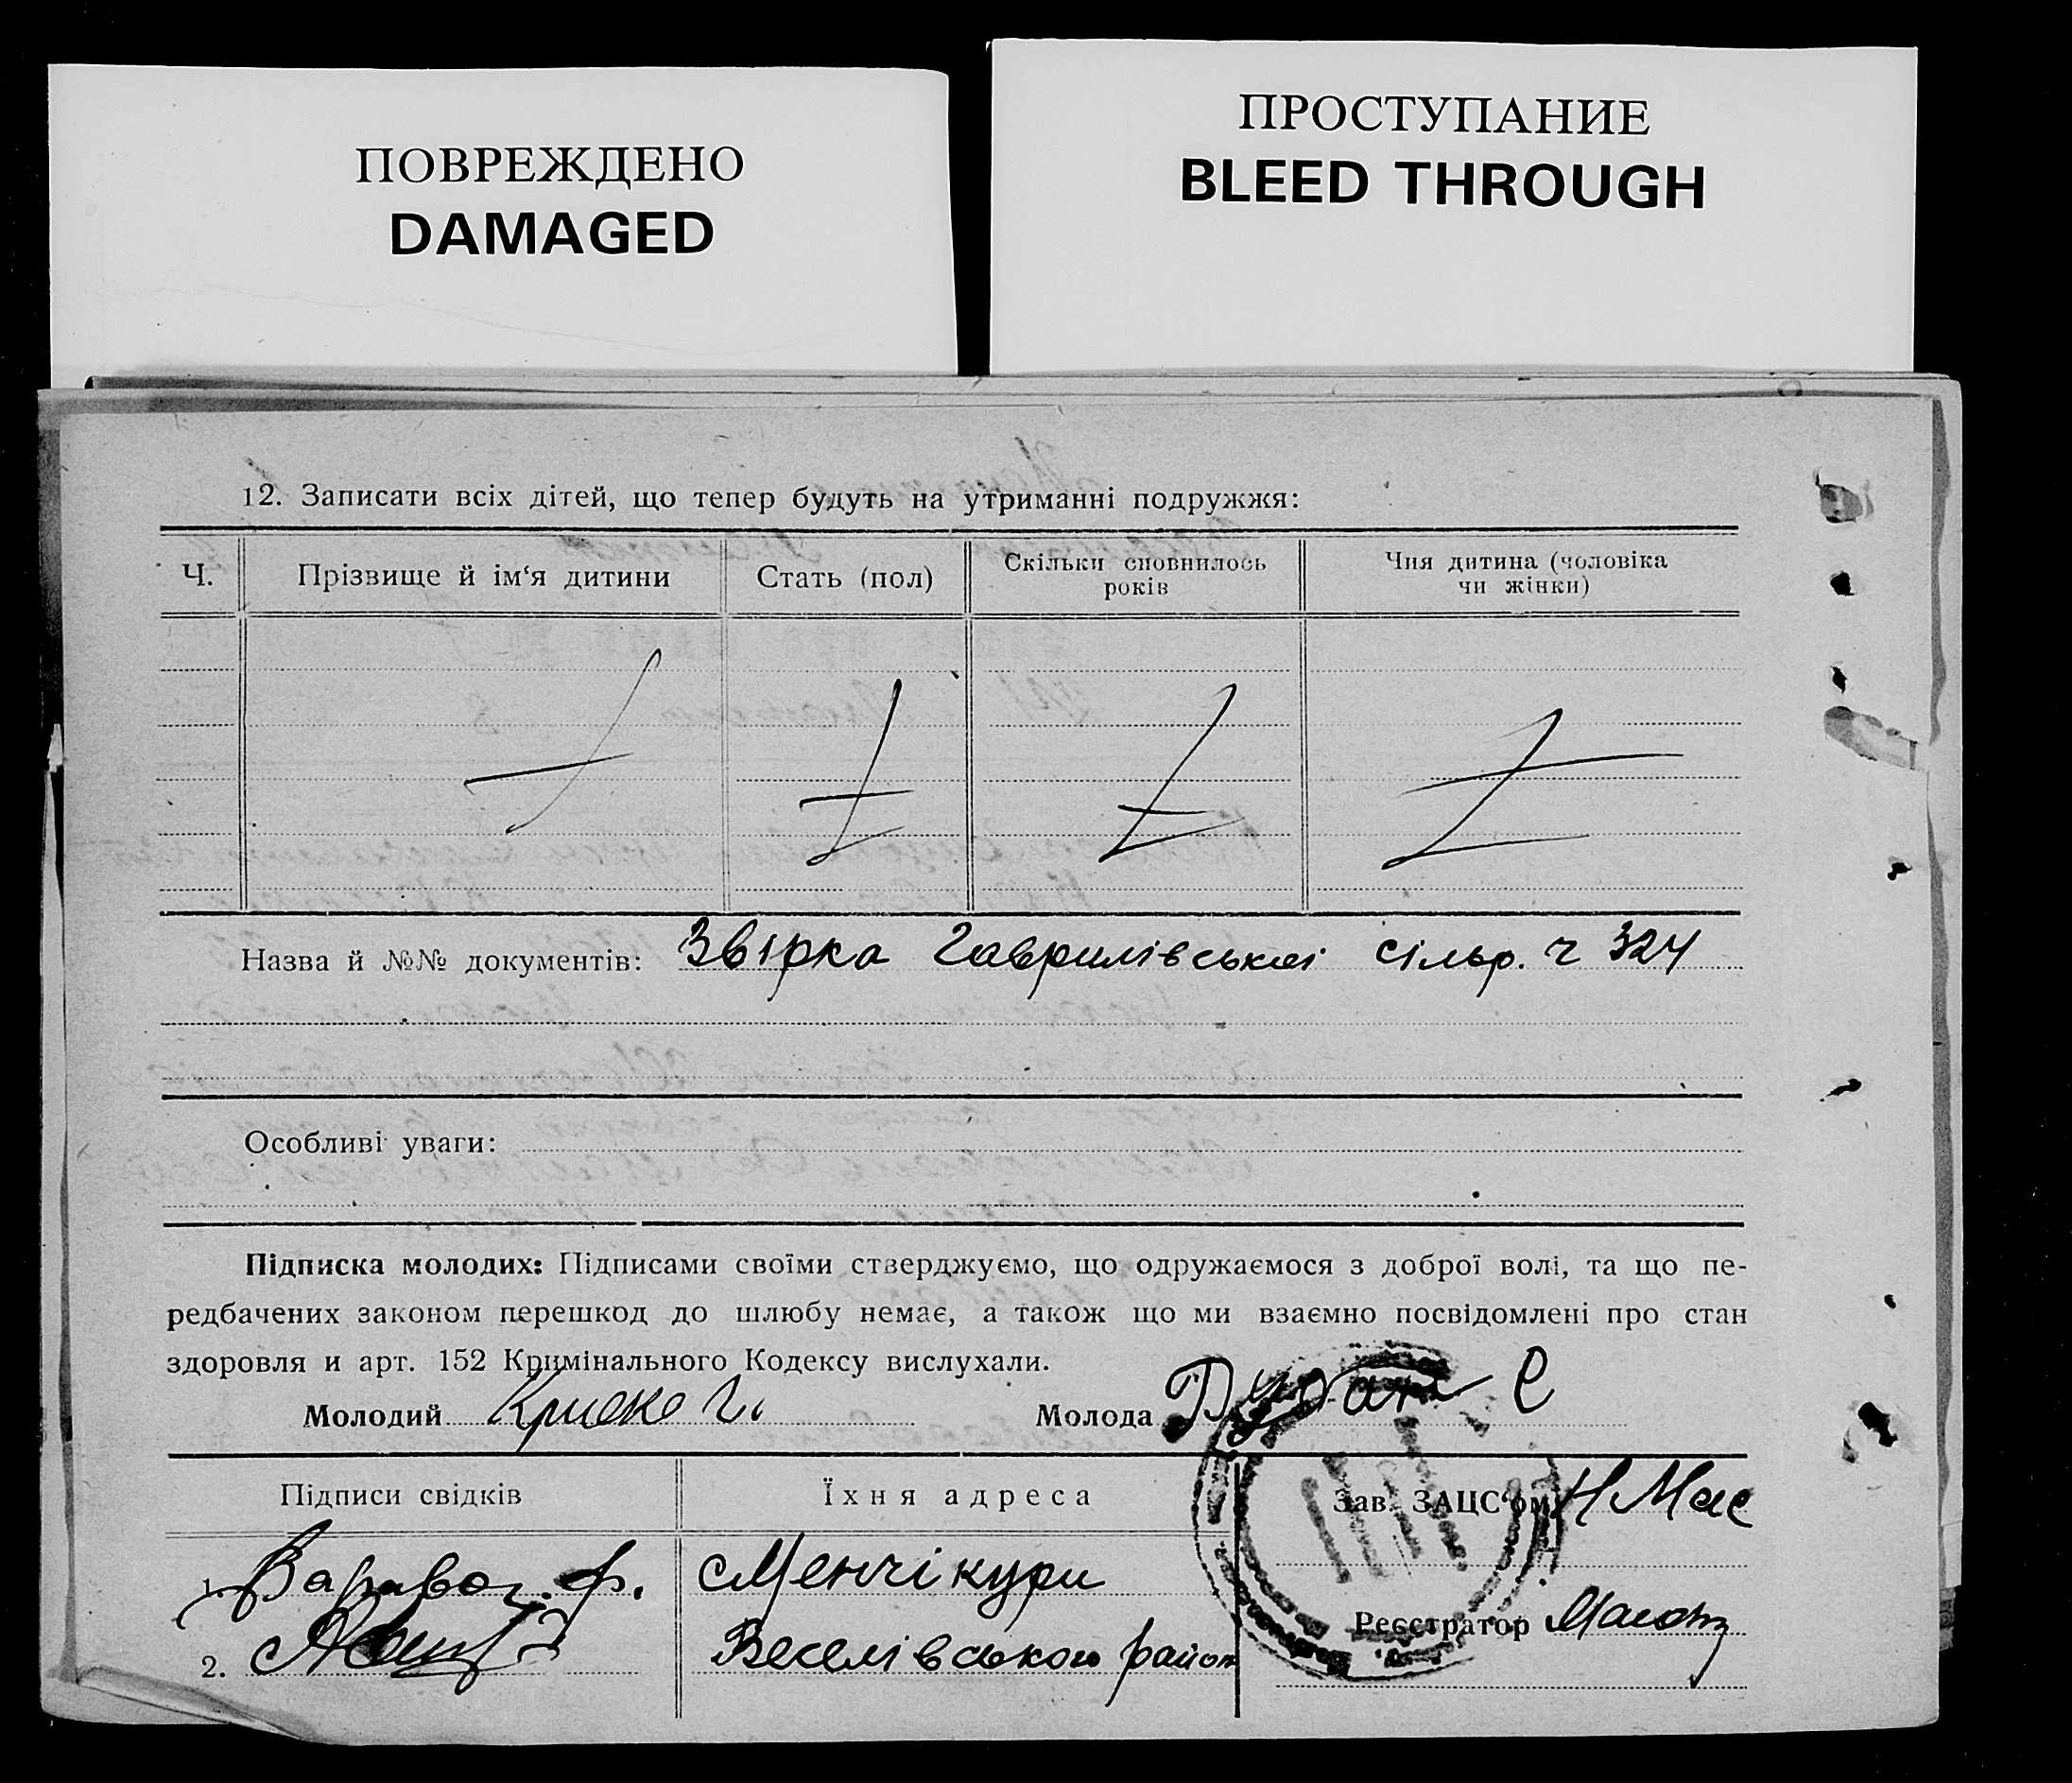 ПОВРЕЖДЕНО
DAMAGED
ПРОСТУПАНИЕ
BLEED THROUGH
12. Записати всіх дітей, що тепер будуть на утриманні подружжя:
Ч.
Прізвище й ім‘я дитини
Стать (пол)
Скільки сповнилось
років
Чия дитина (чоловіка
чи жінки)
Назва й №№ документів: Звірка Гаврилівської сільр. ч 324
Особливі уваги:
Підписка молодих: Підписами своїми стверджуємо, що одружаємося з доброї волі, та що пе-
редбачених законом перешкод до шлюбу немає, а також що ми взаємно посвідомлені про стан
здоровля и арт. 152 Кримінального Кодексу вислухали.
Молодий
Молода
Підписи свідків
Їхня адреса
Зав. ЗАЦС‘ом
1.
Менчікури
Реєстратор
2.
Веселівського район